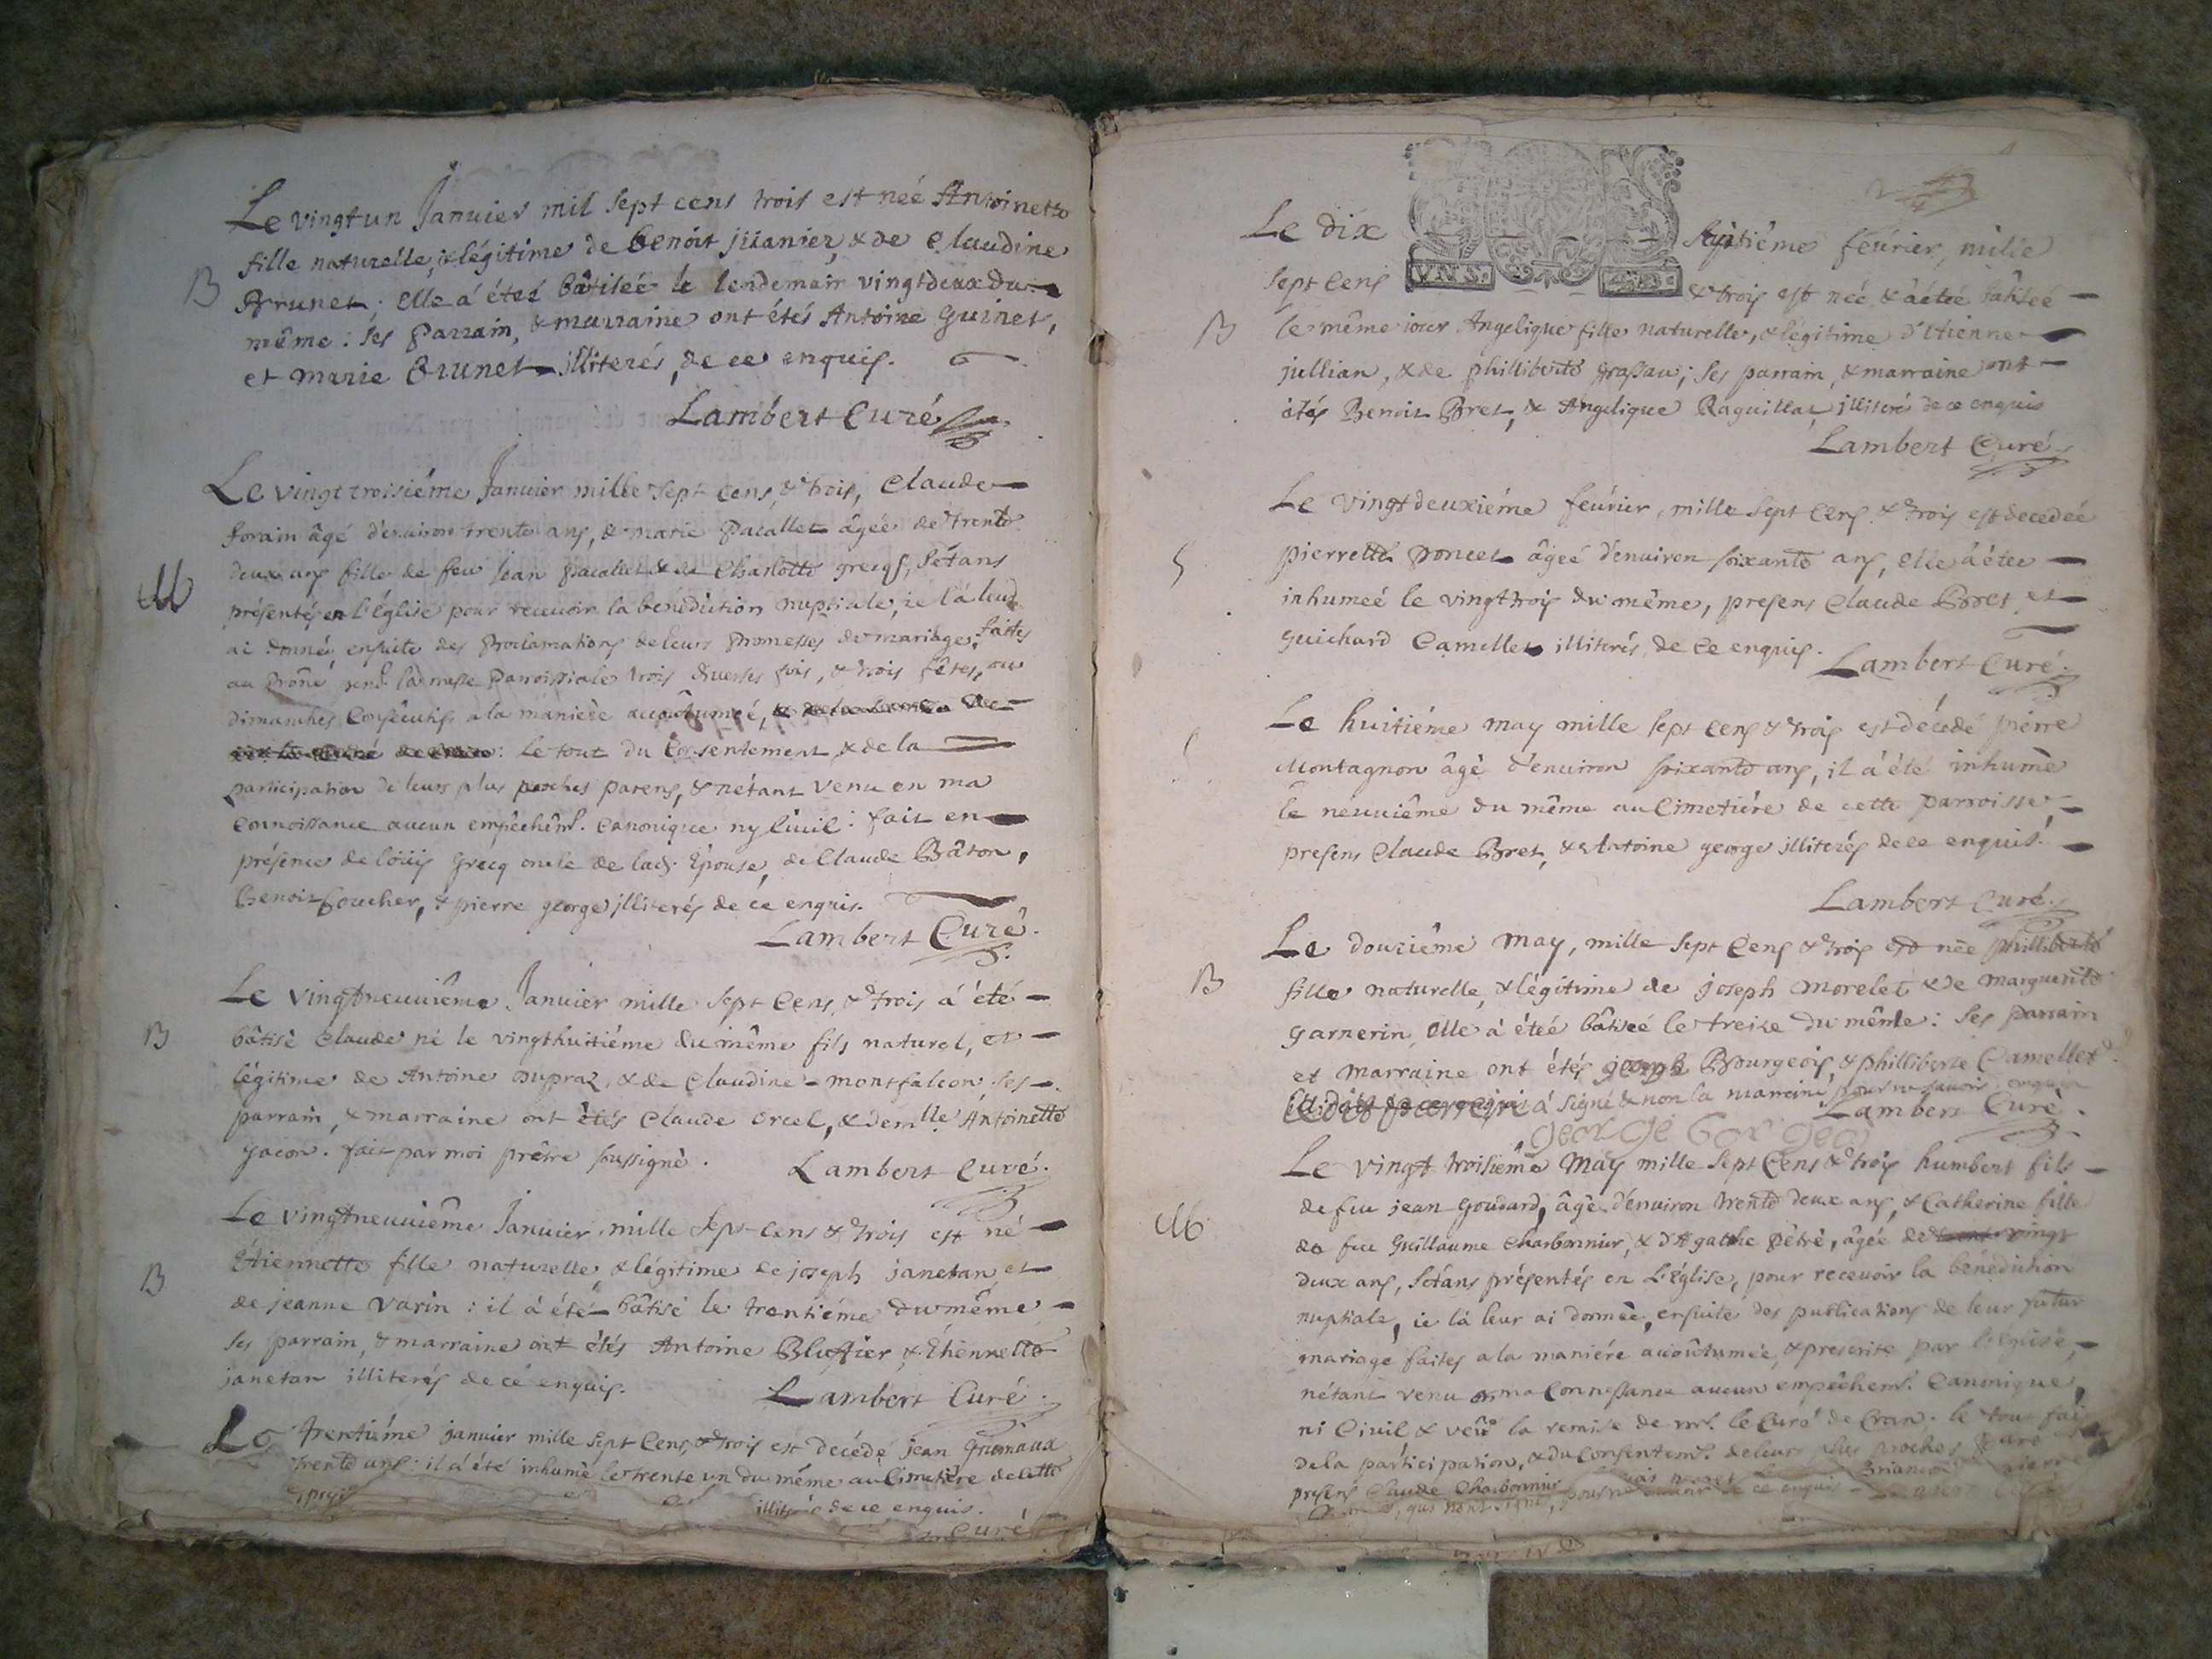 Le vingtun Januier mil sept cens trois est néé Antoinette
fille naturelle, & légitime de benoit juanier, & de Claudine
B
Brunet : elle á étéé bâtiséé le lendemain vingtdeux du
même : ses parrain, & marraine ont étés Antoine Guinet,
et marie Brunet illiterés, de ce enquis.
Lambert Curé
Le vingt troisiéme Januier mille sept cens, & trois, Claude
forain âgé d'enuiron trente ans, & marie Pacallet âgéé de trente
deux ans fille de feu Jean pacallet & de Charlotte grecq, s'étans
M
présentés en l'église pour receuoir la bénédiction nuptiale, ie la leur
ai donnéé ensuite des Proclamations de leurs Promesses de mariage, faites
au Prône pend. la messe Paroissiale trois diuerses fois, & trois fêtes, ou
dimanches Consécutifs a la maniére accoûtuméé,
: le tout du Consentement & de la
participation de leurs plus proches parens, & n'étant venu en ma
connoissance aucun empêchemt. Canonique ny Ciuil : fait en
présence de loüis Grecq oncle de lad. Epouse, de Claude Bâton,
Benoit foucher, & pierre george illiterés de ce enquis.
Lambert Curé.
Le vingtneuuiême Januier mille sept Cens, & trois á été
B
bâtisé Claude né le vingthuitiéme du même fils naturel, et
légitime de Antoine dupraz, & de Claudine montfalcon, ses
parrain, & marraine ont étés Claude orcel, & demlle Antoinette
gacon. fait par moi prêtre soussigné.
Lambert Curé.
Le vingtneuuiême Januier mille sept cens & trois est né
B
Etiennette fille naturelle, & légitime de joseph janetan, et
de jeanne varin : il á été bâtisé le trentiéme du même
ses parrain, & marraine ont étés Antoine Bluffier, & Etiennette
janetan illiterés de cé enquis.
Lambert Curé.
Le trentiéme januier mille sept Cens, & trois est decédé jean Grumaux
trente ans : il á été inhumé le trente un du même au Cimetiére de cette
illité de ce enquis.
Curé
Le dix septiéme féurier, mille
VN S. 4 D.
sept Cens & trois est néé & á étéé bâtiséé
B
le même iour Angelique fille naturelle, & légitime d'Etienne
jullian, & de phillibertte grassau ; ses parrain, & marraine ont
étés Benoit Bret, & Angelique Raguillat, illiterés de ce enquis
Lambert Curé
Le vingtdeuxiéme féurier, mille sept Cens & trois est decedéé
S
pierrette poncet âgéé d'enuiron soixante ans, elle á étéé
inhuméé le vingttrois du même, presens Claude Bret et
guichard Camellet illiterés, de ce enquis.
Lambert Curé.
Le huitiéme may mille sept cens & trois est décedé pierre
S
Montagnon âgé d'enuiron soixante ans, il á été inhumé
le neuuiême du même au Cimetiére de cette parroisse,
presens Claude Bret, & Antoine george illiterés de ce enquis.
Lambert Curé.
Le douziême may, mille sept Cens & trois est née phillibertte
B
fille naturelle, & légitime de joseph morelet & de marguerite
garnerin, elle á étéé bâtiséé le treize du même : ses parrain
et marraine ont étés george Bourgeois, & philliberte Camellet
á signé & non la marraine pour ne sauoir enquise
Lambert Curé.
george bor geo
Le vingt troisiême May mille sept Cens & trois humbert fils
de feu jean goudard, âgé d'enuiron trente deux ans, & Catherine fille
M
de feu Guillaume Charbonnier, & d'Agathe Pétré, âgée de vingt
deux ans, s'étans présentés en l'église, pour receuoir la bénédiction
nuptiale, ie la leur ai donnée, ensuite des publications de leur futur
mariage faites a la maniére accoûtumée, & prescrite par l'église,
n'étant venu en ma Connoissance aucun empêchemt. Canonique,
ni Ciuil & veû la remise de mr. le Curé de Cran. le tout fait
de la participation, & du Consentemt. de leurs plus proches
presens Claude Charbonnier
qui n'ont signé, pour ne sauoir de ce enquis